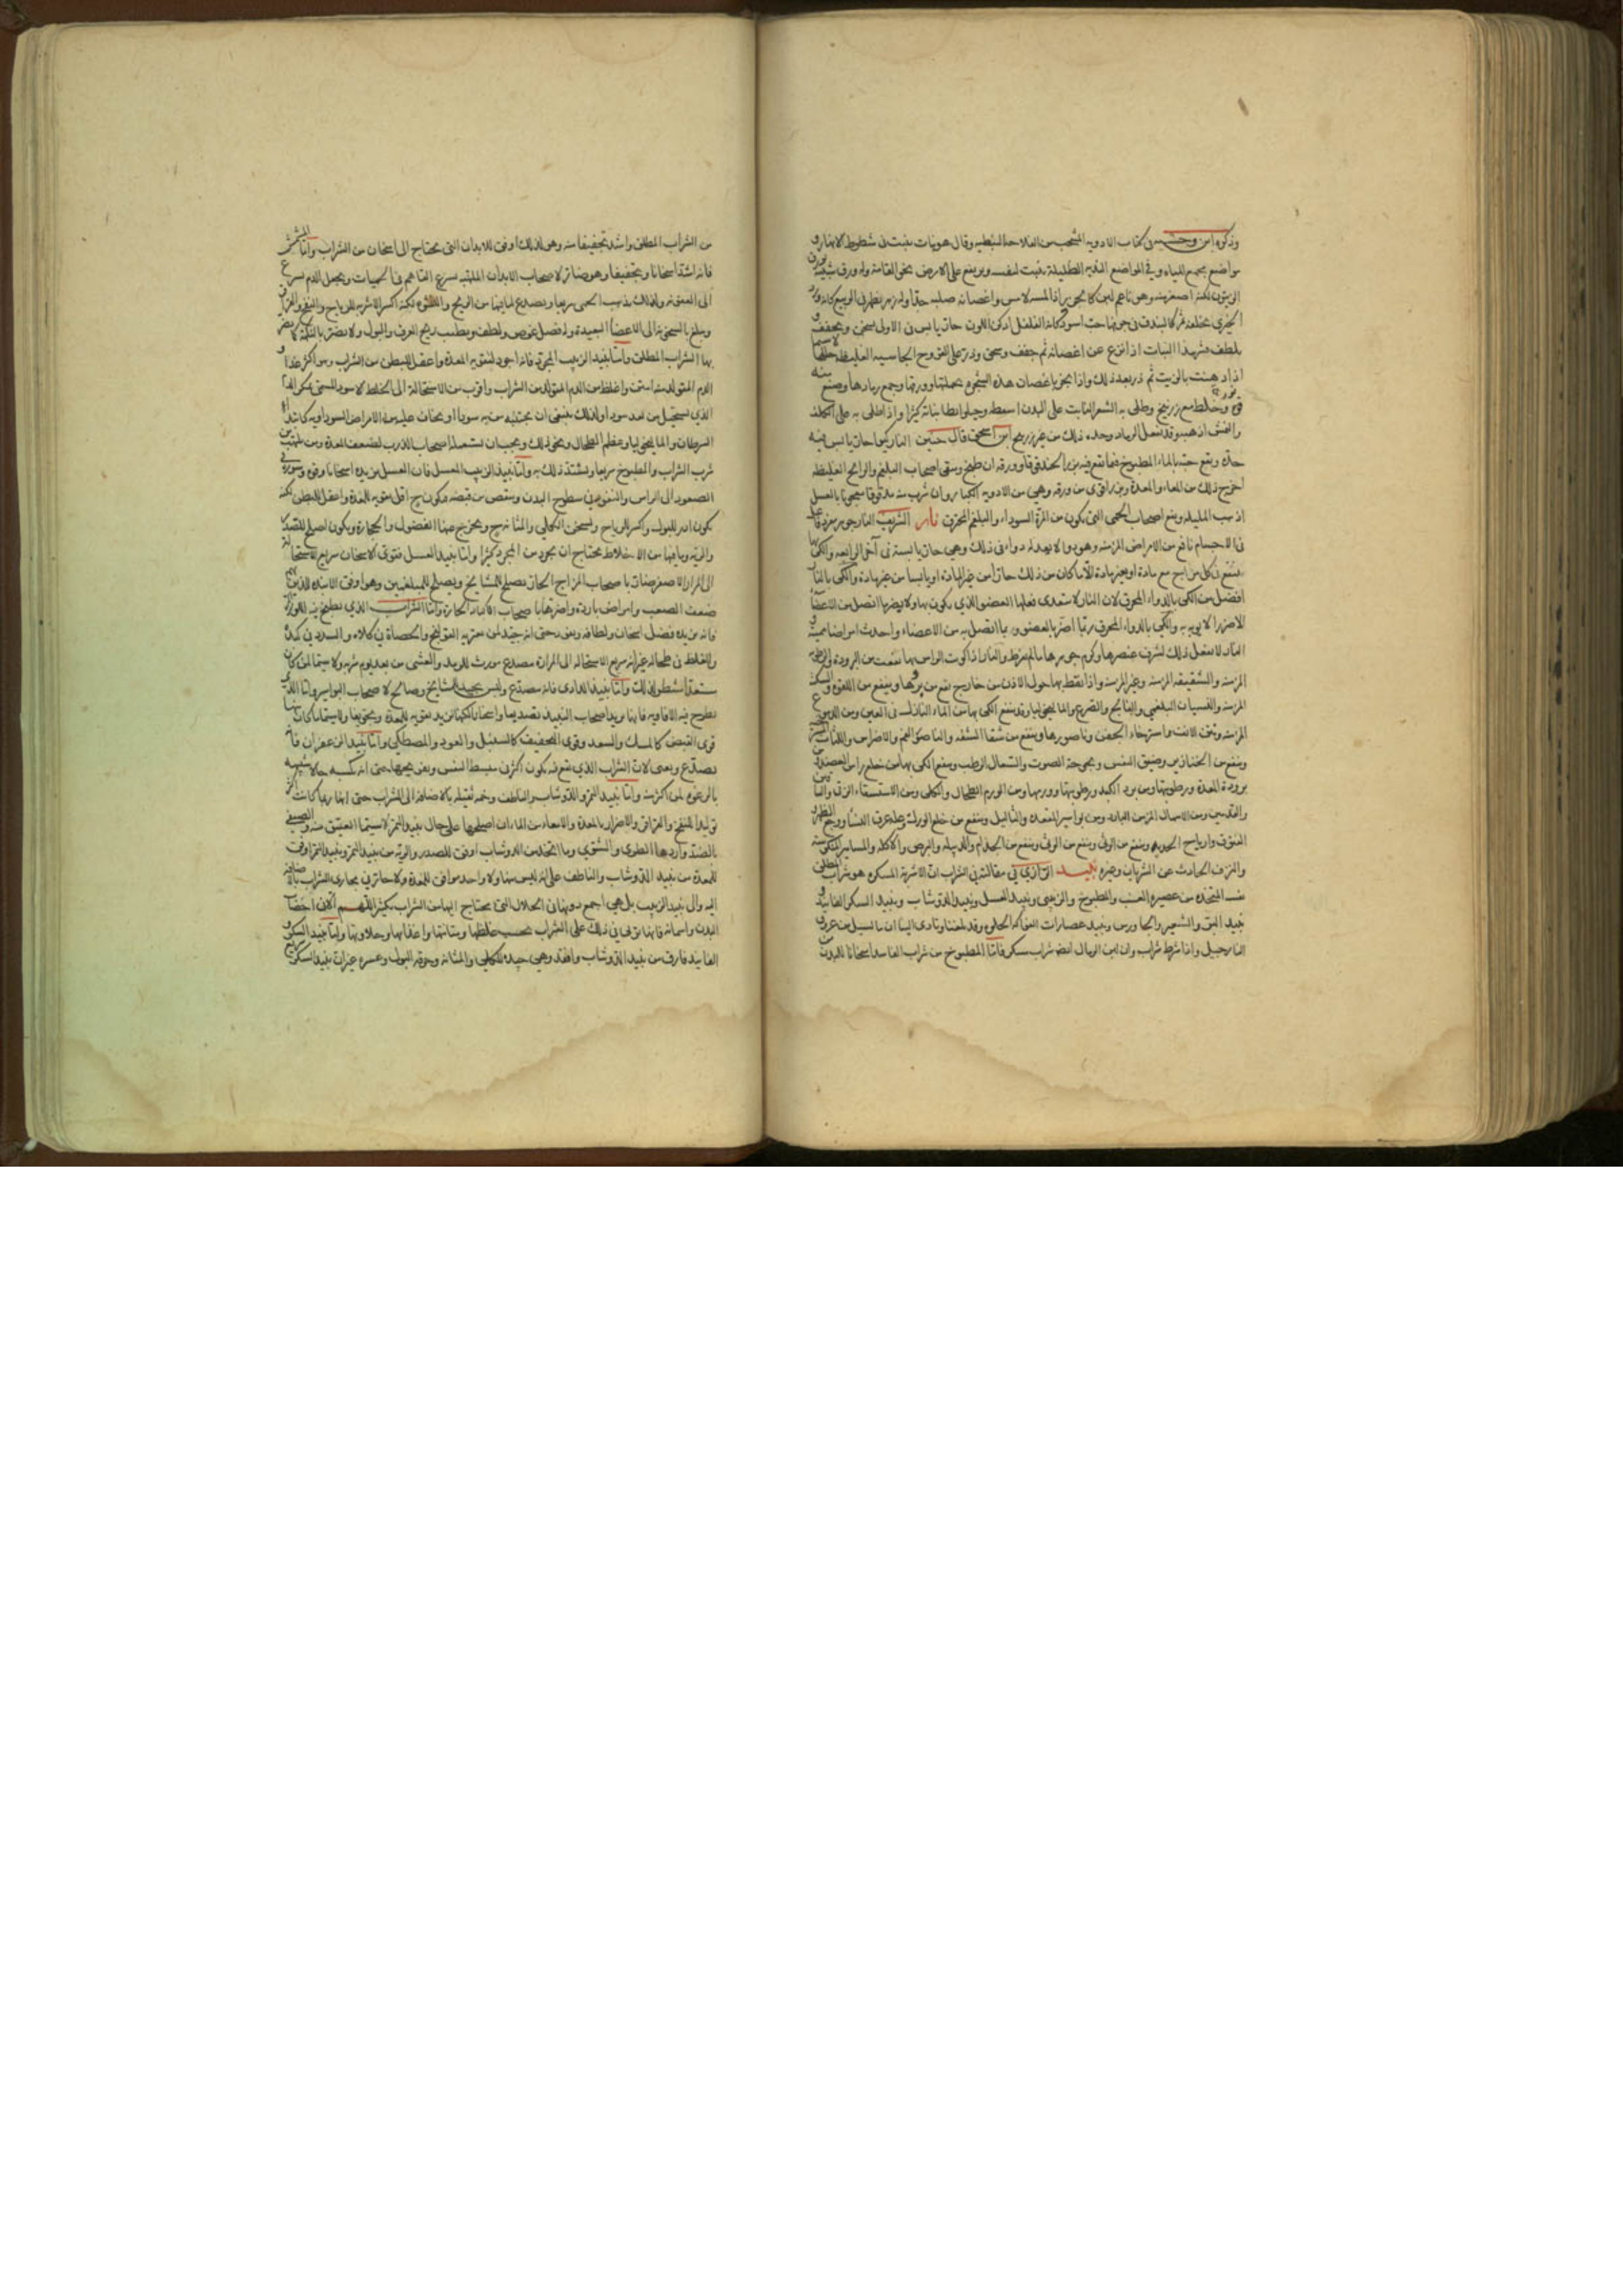 وذكره ابن وحشية في كتاب الادوية المنتخب من الفلاحة النبطية وقال هو نبات ينبت في شطوط الانهار و
مواضع مجمع المياه وفي المواضع الظليلة ينبت لنفسه ويرتفع على الارض نحو القامة وله ورق شبيه بورق
الزيتون لكنه اصغر منه وهو ناعم لين كالحرير اذا لمسه لامس واغصانه صلبة جدا وله زهر يظهر في الربيع كانه ورد
الخيري يخلفه ثمر كالبندق في جوفها حب اسود كانه الفلفل ادكن اللون حار يابس في الاولى يسخن ويجفف و
يلطف ثمر هذا النبات اذا نزع عن اغصانه ثم جفف وسحق وذر على القروح الجاسية الغليظة حللها لا سيما
اذا دهنت بالزيت ثم ذر بعد ذلك واذا احرق باغصان هذه الشجرة بجملتها وورقها وجمع رمادها وصنع منه
وخلط مع زرنيخ وطلي به الشعر النابت على البدن اسقطه وابطا نباته كثيرا واذا طلي به على الكلف
والنمش اذهبه وقد يفعل الرماد وحده ذلك من غير زرنيخ ابن اسحق قال حنين حار يابس فيه
حدة وينفع حبه بالماء المطبوخ فيه بزر الحندقوقا وورقه ان طبخ وسقي اصحاب البلغم والرياح الغليظة
اخرج ذلك من المعاء والمعدة من ورقه وهي من الادوية الكبار وان شرب منه مدقوقا معجونا بالعسل
اذهب المليلة ونفع اصحاب الحمى التي تكون من المرة السوداء والبلغم المحترق نار الشريف النار جوهر فاعل
في الاجسام نافع من الامراض المزمنة وهو دواء لا يعدله دواء في ذلك وهي حارة يابسة في آخر الرابعة والكي بها
ينتفع في كل مزاج مع مادة او بغير مادة الا ما كان من ذلك حارا من غير مادة او يابسا من غير مادة والكي بالنار
افضل من الكي بالدواء المحرق لان النار لا يتعدى فعلها العضو الذي يكون بها ولا يضر بما اتصل من الاعضا
الا ضررا لا يؤبه به والكي بالدواء المحرق ربما اضر بالعضو وبما اتصل به من الاعضاء واحدث امراضا مميتة و
النار لا تفعل ذلك لشرف عنصرها وكرم جوهرها ما لم يفرط والنار اذا كويت الراس بها نفعت من البرودة والرطوبة
المزمنة والشقيقة المزمنة وغير المزمنة واذا نقط بها حول الاذن من خارج نفع من بردها وينفع من اللقوة والسكتة
المزمنة والنسيان البلغمي والفالج والصرع والمالنخوليا وينفع الكي بها من الماء النازل في العين ومن الدموع
المزمنة ونتن الانف واسترخاء الجفن وناصورها وينفع من شقاق الشفة والناصور في الفم والاضراس واللثات
وينفع من الخنازير وضيق النفس وبحوحة الصوت والسعال الرطب وينفع الكي بها من خلع راس العضد ومن
برودة المعدة ورطوبتها ومن برد الكبد ورطوبتها وورمها ومن الورم الطحال والكلى ومن الاستسقاء الزقي والساقين
والقدمين ومن الاسهال المزمن البارد ومن بواسير المقعدة والثاليل وينفع من خلع الورك وعلة عرق النسا ووجع الظهر
الفتوق وارياح الحدبة وينفع من الوثي وينفع من الجذام والدبيلة والبرص والاكلة والمسامير المنكوسة
والنزف الحادث عن الشريان وغيره نبيذ الرازي في مقالته في الشراب ان الاشربة المسكرة هو شراب المطلق
المتخذ من عصير العنب والمطبوخ والزبيبي ونبيذ العسل ونبيذ الدوشاب ونبيذ السكر الفانيذ و
نبيذ البر والشعير والجاورس ونبيذ عصارات الفواكه الحلوة وقد بلغنا وتادى الينا ان ما يسيل من عروق
النارجيل واذا شرط شراب وان لبن الرماك ايضا شراب مسكر فاما المطبوخ من شراب الفاسد اسخانا للبدن من
من الشراب المطلق واشد تجفيفا منه وهو لذلك اوفق للابدان التي تحتاج الى اسخان من الشراب واما المشمس
فانه اشد اسخانا وتجفيفا وهو ضار لاصحاب الابدان الملتهبة يسرع القاهم في الحميات ويجعل الدم يسرع
الى العفونة ولذلك يذهب الحمى سريعا ويصدع لكنه اكسر الاشربة للرياح والنفخ والقراقر
ويبلغ بالسخونة الى الاعضا البعيدة وله فضل غوص ولطف ويطيب ريح العرق والبول ولا يضر بالنكهة كما يضر
بها الشراب المطلق واما نبيذ الزبيب المجرد فانه اجود لتقوية المعدة واعقل للبطن من الشراب وهو اكثر غذا و
الدم المتولد منه امتن واغلظ من الدم المتولد من الشراب واقرب من الاستحالة الى الخلط الاسود المسمى عكر الدم
الذي يستحيل من بعد سوداء ولذلك ينبغي ان يجتنبه من به سوداء او يخاف عليه من الامراض السوداوية
السرطان والمالنخوليا وعظم الطحال ونحو ذلك ويجب ان يستعمله اصحاب الذرب لضعف المعدة ومن يلتهب من
شرب الشراب والمطبوخ سريعا ويشتد ذلك به واما نبيذ الزبيب المعسل فان العسل يزيده اسخانا وقوة وسورة في
الصعود الى الراس والنفوذ في سطوح البدن وينقص من قبضه فيكون اقل تقوية للمعدة واعقل للبطن لكنه
يكون ادر للبول واكسر للرياح واسخن للكلى والمثانة ويخرج منها الفضول والحجارة ويكون اصلح للصدر
والرئة وما فيها من الاخلاط يحتاج ان يجرد من المجرد كثيرا واما نبيذ العسل فقوي الاسخان سريع الاستحالة
الى المرار الاصفر ضار باصحاب المزاج الحار يصلح للمشايخ ويصلح للمبلغمين وهو اوفق الاشربة للذين بهم
ضعف العصب وامراض باردة واضرها باصحاب الاكباد الحارة واما الشراب الذي يطبخ فيه
فانه يزيده فضل اسخان ولطافة حتى انه جيد لمن يعتريه القولنج والحصاة في كلاه والسدد في كبده
والغلظ في طحاله غير انه سريع الاستحالة الى المرارة مصدع مورث للرمد والغشي من بعد يوم شربه ولا سيما لمن كان
مستعدا لذلك واما نبيذ الدادي فانه مصدع وليس بجيد للمشايخ وصالح لاصحاب البواسير واما الذي
يطرح فيه الافاويه فانها يزيد اصحاب النبيذ تصديعا واسخانا لكنها تزيد تقوية للمعدة وتجفيفا ولا سيما ما كان
قوي القبض كالمسك والسعد وقوي التجفيف كالسنبل والعود والمصطكى واما نبيذ الزعفران فانه
يصدع ويغثي لان الشراب الذي يقع فيه يكون اكثر في تبسيط النفس وتفريحها حتى انه يكسبه حالا شبيهة
بالرعونة لمن اكثر منه واما نبيذ التمر والدوشاب والناطف وخمر ثقيلة بالاضافة الى الشراب حتى انها ربما كانت اكثر
توليدا للنفخ والقراقر والاضرار بالمعدة والامعاء من الماء ان اصلحها على حال نبيذ التمر لا سيما العتيق منه والصيفي
بالضد واردها الطري والشتوي وما اتخذ من الدوشاب اوفق للصدر والرئة من نبيذ التمر ونبيذ التمر اوفق
للمعدة من نبيذ الدوشاب والناطف على انه ليس منها ولا واحد موافق للمعدة ولا جائز في مجاري الشراب بالاضافة
اليه والى نبيذ الزبيب بل هي اجمع دونها في الخلال التي يحتاج اليها من الشراب بكثير اللهم الا في اخصاب
البدن واسمانه فانها توفى في ذلك على الشراب بحسب غلظها ومتانتها واغذائها وحلاوتها واما نبيذ السكر و
الفانيذ فارق من نبيذ الدوشاب وانفذ وهي جيدة للكلى والمثانة وحرقة البول وعسره غير ان نبيذ السكر